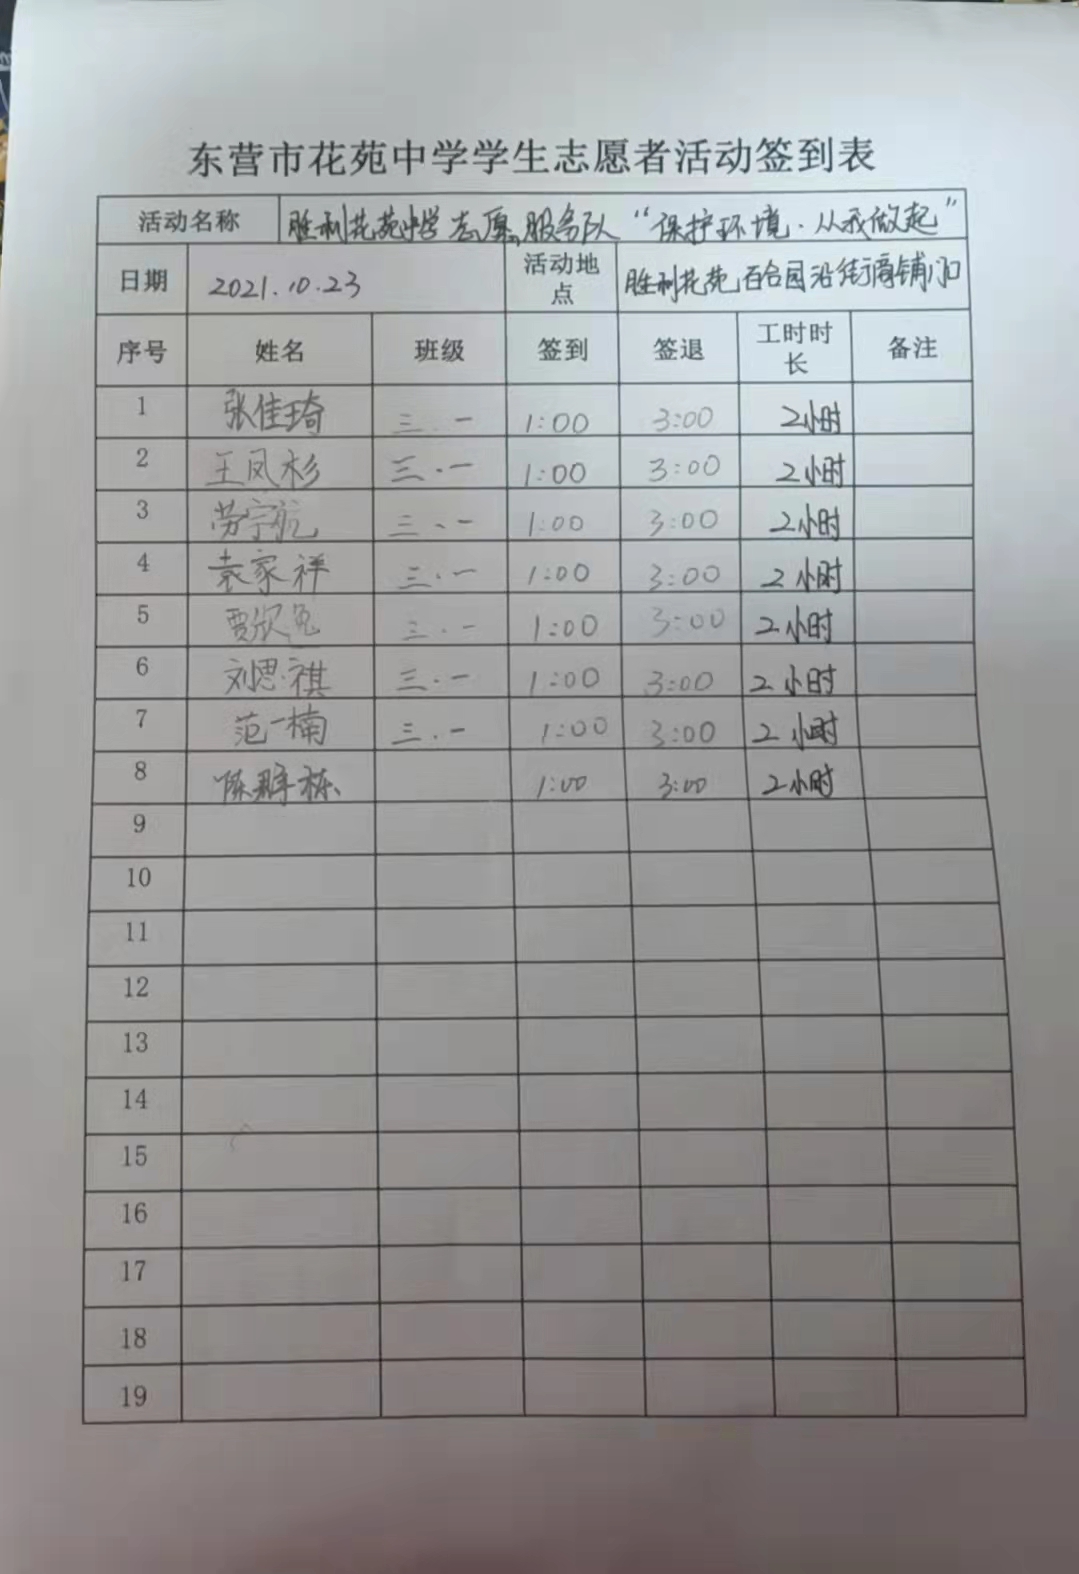 东营市花苑中学学生志愿者活动签到表
活动名称 胜利花苑中学志愿服务队“保护环境·从我做起”
日期 2021.10.23 活动地点 胜利花苑百合园沿街商铺门口
序号 姓名 班级 签到 签退 工时时长 备注
1 张佳琦 三.一 1:00 3:00 2小时
2 王凤杉 三.一 1:00 3:00 2小时
3 劳宇航 三、一 1:00 3:00 2小时
4 袁家祥 三.一 1:00 3:00 2小时
5 三.一 1:00 3:00 2小时
6 刘思祺 三.一 1:00 3:00 2小时
7 范一楠 三.一 1:00 3:00 2小时
8 1:00 3:00 2小时
9
10
11
12
13
14
15
16
17
18
19